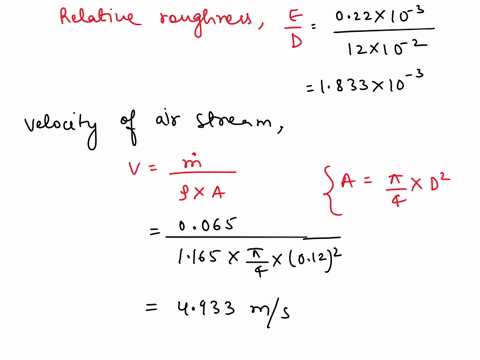 Relative roughness, E/D = 0.22×10^-3 / 12×10^-2
= 1.833×10^-3
Velocity of air stream,
V = ṁ / ρ×A { A = π/4 × D²
= 0.065 / 1.165 × π/4 × (0.12)²
= 4.933 m/s